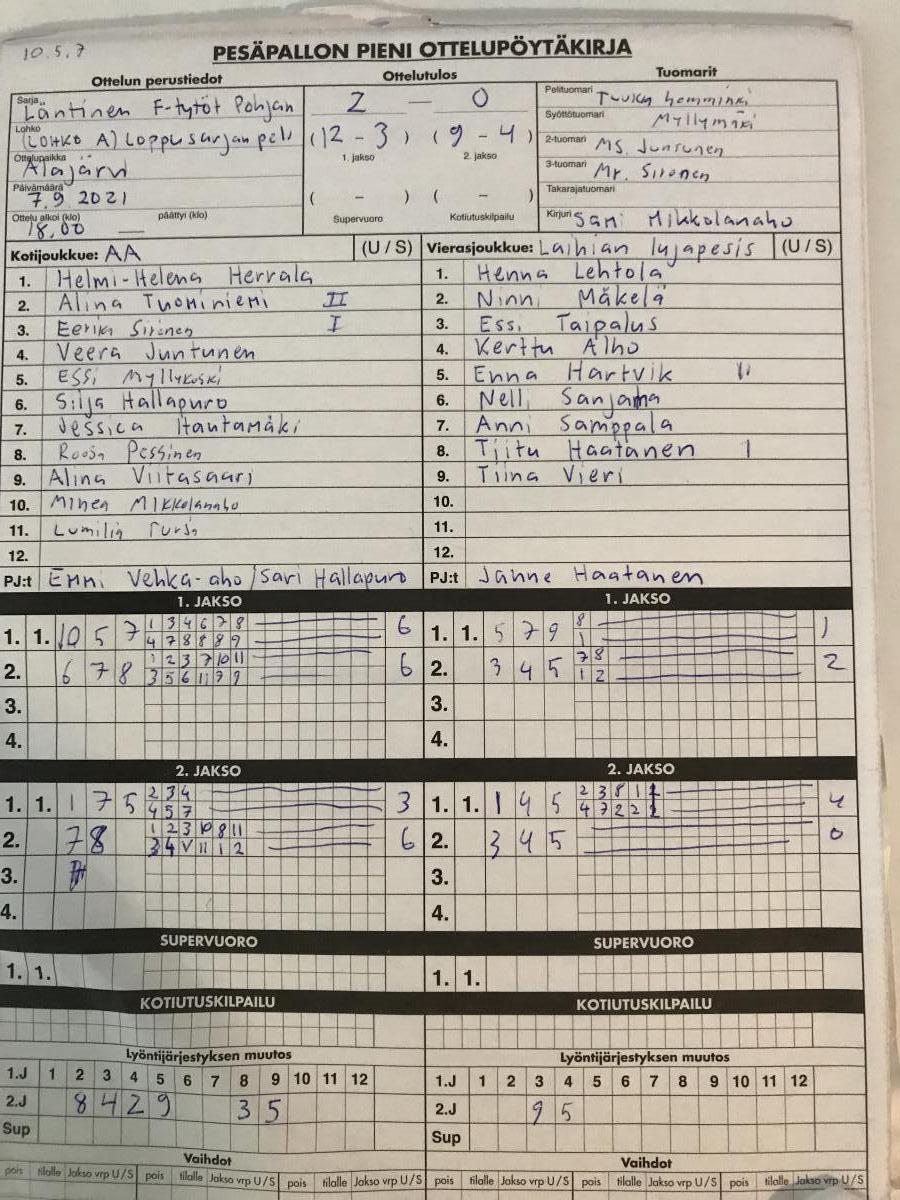 10.5.7
PESÄPALLON PIENI OTTELUPÖYTÄKIRJA
Ottelun perustiedot
Sarja Läntinen F-tytöt Pohjan
Lohko (LOHKO A) Loppusarjan peli
Ottelupaikka Alajärvi
Päivämäärä 7.9 2021
Ottelu alkoi (klo) päättyi (klo)
18,00 —
Ottelutulos
2 — 0
(12 - 3) (9 - 4)
1. jakso 2. jakso
( - ) ( - )
Supervuoro Kotiutuskilpailu
Tuomarit
Pelituomari
Syöttötuomari Myllymäki
2-tuomari MS. Juntunen
3-tuomari Mr. Sironen
Takarajatuomari
Kirjuri Sami Mikkolanaho
Kotijoukkue: AA (U / S)
1. Helmi-Helena Herrala
2. Alina Tuominiemi II
3. Eerika Sironen I
4. Veera Juntunen
5. Essi Myllykoski
6. Silja Hallapuro
7. Jessica Hautamäki
8. Roosa Pessinen
9. Alina Viitasaari
10. Minea Mikkolanaho
11. Lumilia
12.
PJ:t Emmi Vehka-aho / Sari Hallapuro
Vierasjoukkue: Laihian lujapesis (U / S)
1. Henna Lehtola
2. Ninni Mäkelä
3. Essi Taipalus
4. Kerttu Alho
5. Enna Hartvik II
6. Nelli Sanjama
7. Anni Samppala
8. Tiitu Haatanen I
9. Tiina Vieri
10.
11.
12.
PJ:t Janne Haatanen
1. JAKSO
1. 1. 10 5 7 1 3 4 6 7 8 6
4 7 8 8 8 9
2. 6 7 8 1 2 3 7 10 11 6
3 5 6 11 7 9
3.
4.
1. JAKSO
1. 1. 5 7 9 8 1
1
2. 3 4 5 7 8 2
1 2
3.
4.
2. JAKSO
1. 1. 1 7 5 2 3 4 3
4 5 7
2. 7 8 1 2 3 10 8 11 6
3 4 V 11 1 2
3.
4.
2. JAKSO
1. 1. 1 4 5 2 3 8 1 4
4 7 2 2
2. 3 4 5 0
3.
4.
SUPERVUORO
1. 1.
SUPERVUORO
1. 1.
KOTIUTUSKILPAILU
KOTIUTUSKILPAILU
Lyöntijärjestyksen muutos
1.J 1 2 3 4 5 6 7 8 9 10 11 12
2.J 8 4 2 9 3 5
Sup
Lyöntijärjestyksen muutos
1.J 1 2 3 4 5 6 7 8 9 10 11 12
2.J 9 5
Sup
Vaihdot
pois tilalle Jakso vrp U/S pois tilalle Jakso vrp U/S pois tilalle Jakso vrp U/S
Vaihdot
pois tilalle Jakso vrp U/S pois tilalle Jakso vrp U/S pois tilalle Jakso vrp U/S